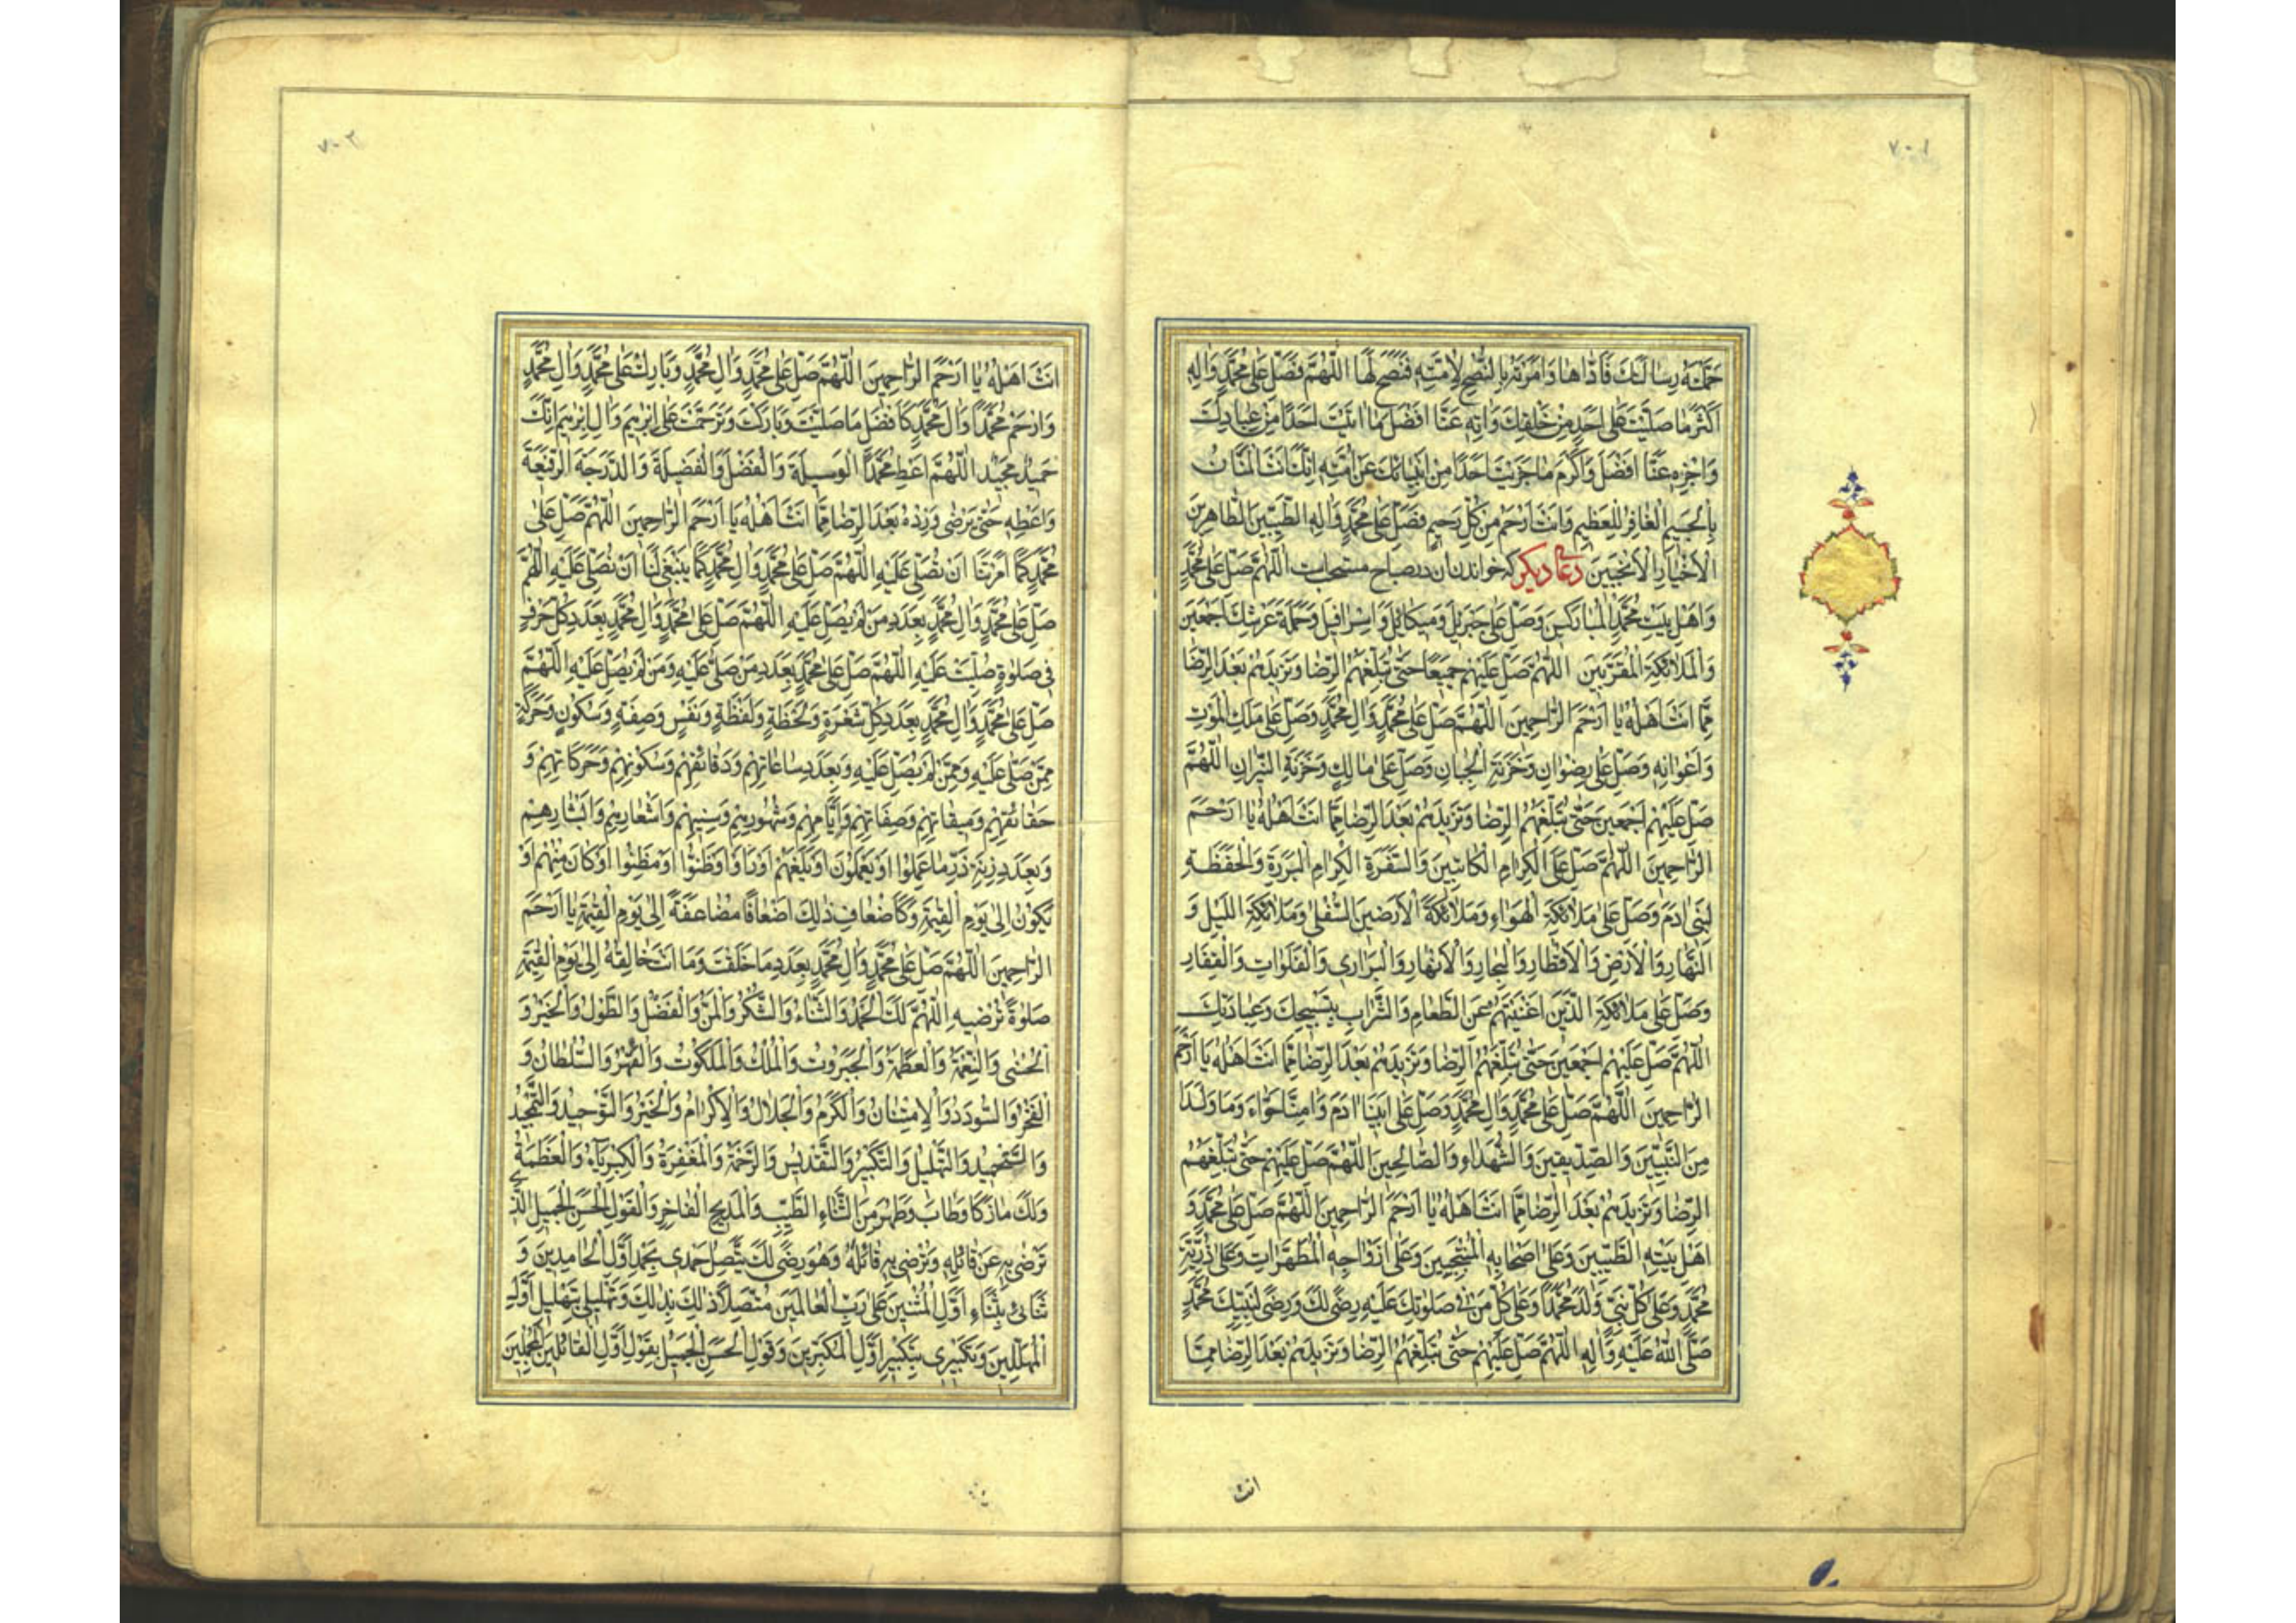 ٧٠١
حَمَّلْتَهُ رِسَالَتَكَ فَاَدَّاهَا وَاَمَرْتَهُ بِالنُّصْحِ لِاُمَّتِهِ فَنَصَحَ لَهَا اَللّٰهُمَّ فَصَلِّ عَلٰى مُحَمَّدٍ وَاٰلِهِ
اَكْثَرَ مَا صَلَّيْتَ عَلٰى اَحَدٍ مِنْ خَلْقِكَ وَاٰتِهِ عَنَّا اَفْضَلَ مَا اٰتَيْتَ اَحَدًا مِنْ عِبَادِكَ
وَاجْزِهِ عَنَّا اَفْضَلَ وَاَكْرَمَ مَا جَزَيْتَ اَحَدًا مِنْ اَنْبِيَائِكَ عَنْ اُمَّتِهِ اِنَّكَ اَنْتَ الْمَنَّانُ
بِالْجَسِيمِ الْغَافِرُ لِلْعَظِيمِ وَاَنْتَ اَرْحَمُ مِنْ كُلِّ رَحِيمٍ فَصَلِّ عَلٰى مُحَمَّدٍ وَاٰلِهِ الطَّيِّبِينَ الطَّاهِرِينَ
الْاَخْيَارِ الْاَنْجَبِينَ دعای دیکر که خواندن ان در صباح مستحب است اَللّٰهُمَّ صَلِّ عَلٰى مُحَمَّدٍ
وَاَهْلِ بَيْتِ مُحَمَّدٍ الْمُبَارَكِينَ وَصَلِّ عَلٰى جَبْرَئِيلَ وَمِيكَائِيلَ وَاِسْرَافِيلَ وَحَمَلَةِ عَرْشِكَ اَجْمَعِينَ
وَالْمَلَائِكَةِ الْمُقَرَّبِينَ اَللّٰهُمَّ صَلِّ عَلَيْهِمْ جَمِيعًا حَتّٰى تُبَلِّغَهُمُ الرِّضَا وَتَزِيدَهُمْ بَعْدَ الرِّضَا
مِمَّا اَنْتَ اَهْلُهُ يَا اَرْحَمَ الرَّاحِمِينَ اَللّٰهُمَّ صَلِّ عَلٰى مُحَمَّدٍ وَاٰلِ مُحَمَّدٍ وَصَلِّ عَلٰى مَلَكِ الْمَوْتِ
وَاَعْوَانِهِ وَصَلِّ عَلٰى رِضْوَانَ وَخَزَنَةِ الْجِنَانِ وَصَلِّ عَلٰى مَالِكٍ وَخَزَنَةِ النِّيرَانِ اَللّٰهُمَّ
صَلِّ عَلَيْهِمْ اَجْمَعِينَ حَتّٰى تُبَلِّغَهُمُ الرِّضَا وَتَزِيدَهُمْ بَعْدَ الرِّضَا مِمَّا اَنْتَ اَهْلُهُ يَا اَرْحَمَ
الرَّاحِمِينَ اَللّٰهُمَّ صَلِّ عَلَى الْكِرَامِ الْكَاتِبِينَ وَالسَّفَرَةِ الْكِرَامِ الْبَرَرَةِ وَالْحَفَظَةِ
لِبَنِي اٰدَمَ وَصَلِّ عَلٰى مَلَائِكَةِ الْهَوَاءِ وَمَلَائِكَةِ الْاَرَضِينَ السُّفْلٰى وَمَلَائِكَةِ اللَّيْلِ وَ
النَّهَارِ وَالْاَرْضِ وَالْاَقْطَارِ وَالْبِحَارِ وَالْاَنْهَارِ وَالْبَرَارِي وَالْفَلَوَاتِ وَالْقِفَارِ
وَصَلِّ عَلٰى مَلَائِكَةِ الَّذِينَ اَغْنَيْتَهُمْ عَنِ الطَّعَامِ وَالشَّرَابِ بِتَسْبِيحِكَ وَعِبَادَتِكَ
اَللّٰهُمَّ صَلِّ عَلَيْهِمْ اَجْمَعِينَ حَتّٰى تُبَلِّغَهُمُ الرِّضَا وَتَزِيدَهُمْ بَعْدَ الرِّضَا مِمَّا اَنْتَ اَهْلُهُ يَا اَرْحَمَ
الرَّاحِمِينَ اَللّٰهُمَّ صَلِّ عَلٰى مُحَمَّدٍ وَاٰلِ مُحَمَّدٍ وَصَلِّ عَلٰى اَبِينَا اٰدَمَ وَاُمِّنَا حَوَّاءَ وَمَا وَلَدَا
مِنَ النَّبِيِّينَ وَالصِّدِّيقِينَ وَالشُّهَدَاءِ وَالصَّالِحِينَ اَللّٰهُمَّ صَلِّ عَلَيْهِمْ حَتّٰى تُبَلِّغَهُمُ
الرِّضَا وَتَزِيدَهُمْ بَعْدَ الرِّضَا مِمَّا اَنْتَ اَهْلُهُ يَا اَرْحَمَ الرَّاحِمِينَ اَللّٰهُمَّ صَلِّ عَلٰى مُحَمَّدٍ وَ
اَهْلِ بَيْتِهِ الطَّيِّبِينَ وَعَلٰى اَصْحَابِهِ الْمُنْتَجَبِينَ وَعَلٰى اَزْوَاجِهِ الْمُطَهَّرَاتِ وَعَلٰى ذُرِّيَّةِ
مُحَمَّدٍ وَعَلٰى كُلِّ نَبِيٍّ وَلَدَ مُحَمَّدًا وَعَلٰى كُلِّ مَنْ فِي صَلَوٰتِكَ عَلَيْهِ رِضًى لَكَ وَرِضًى لِنَبِيِّكَ مُحَمَّدٍ
صَلَّى اللّٰهُ عَلَيْهِ وَاٰلِهِ اَللّٰهُمَّ صَلِّ عَلَيْهِمْ حَتّٰى تُبَلِّغَهُمُ الرِّضَا وَتَزِيدَهُمْ بَعْدَ الرِّضَا مِمَّا
انت
٧٠٢
اَنْتَ اَهْلُهُ يَا اَرْحَمَ الرَّاحِمِينَ اَللّٰهُمَّ صَلِّ عَلٰى مُحَمَّدٍ وَاٰلِ مُحَمَّدٍ وَبَارِكْ عَلٰى مُحَمَّدٍ وَاٰلِ مُحَمَّدٍ
وَارْحَمْ مُحَمَّدًا وَاٰلَ مُحَمَّدٍ كَاَفْضَلِ مَا صَلَّيْتَ وَبَارَكْتَ وَتَرَحَّمْتَ عَلٰى اِبْرٰهِيمَ وَاٰلِ اِبْرٰهِيمَ اِنَّكَ
حَمِيدٌ مَجِيدٌ اَللّٰهُمَّ اَعْطِ مُحَمَّدًا الْوَسِيلَةَ وَالْفَضْلَ وَالْفَضِيلَةَ وَالدَّرَجَةَ الرَّفِيعَةَ
وَاَعْطِهِ حَتّٰى يَرْضٰى وَزِدْهُ بَعْدَ الرِّضَا مِمَّا اَنْتَ اَهْلُهُ يَا اَرْحَمَ الرَّاحِمِينَ اَللّٰهُمَّ صَلِّ عَلٰى
مُحَمَّدٍ كَمَا اَمَرْتَنَا اَنْ نُصَلِّيَ عَلَيْهِ اَللّٰهُمَّ صَلِّ عَلٰى مُحَمَّدٍ وَاٰلِ مُحَمَّدٍ كَمَا يَنْبَغِي لَنَا اَنْ نُصَلِّيَ عَلَيْهِ اَللّٰهُمَّ
صَلِّ عَلٰى مُحَمَّدٍ وَاٰلِ مُحَمَّدٍ بِعَدَدِ مَنْ لَمْ يُصَلِّ عَلَيْهِ اَللّٰهُمَّ صَلِّ عَلٰى مُحَمَّدٍ وَاٰلِ مُحَمَّدٍ بِعَدَدِ كُلِّ حَرْفٍ
فِي صَلٰوةٍ صُلِّيَتْ عَلَيْهِ اَللّٰهُمَّ صَلِّ عَلٰى مُحَمَّدٍ بِعَدَدِ مَنْ صَلّٰى عَلَيْهِ وَمَنْ لَمْ يُصَلِّ عَلَيْهِ اَللّٰهُمَّ
صَلِّ عَلٰى مُحَمَّدٍ وَاٰلِ مُحَمَّدٍ بِعَدَدِ كُلِّ شَعْرَةٍ وَلَحْظَةٍ وَلَفْظَةٍ وَنَفَسٍ وَصِفَةٍ وَسُكُونٍ وَحَرَكَةٍ
مِمَّنْ صَلّٰى عَلَيْهِ وَمِمَّنْ لَمْ يُصَلِّ عَلَيْهِ وَبِعَدَدِ سَاعَاتِهِمْ وَدَقَائِقِهِمْ وَسُكُونِهِمْ وَحَرَكَاتِهِمْ وَ
حَقَائِقِهِمْ وَمِيقَاتِهِمْ وَصِفَاتِهِمْ وَاَيَّامِهِمْ وَشُهُورِهِمْ وَسِنِيهِمْ وَاَشْعَارِهِمْ وَاَبْشَارِهِمْ
وَبِعَدَدِ زِنَةِ ذَرِّ مَا عَمِلُوا اَوْ يَعْمَلُونَ اَوْ بَلَغَهُمْ اَوْ رَاَوْا اَوْ ظَنُّوا اَوْ فَطِنُوا اَوْ كَانَ مِنْهُمْ اَوْ
يَكُونُ اِلٰى يَوْمِ الْقِيٰمَةِ وَكَاَضْعَافِ ذٰلِكَ اَضْعَافًا مُضَاعَفَةً اِلٰى يَوْمِ الْقِيٰمَةِ يَا اَرْحَمَ
الرَّاحِمِينَ اَللّٰهُمَّ صَلِّ عَلٰى مُحَمَّدٍ وَاٰلِ مُحَمَّدٍ بِعَدَدِ مَا خَلَقْتَ وَمَا اَنْتَ خَالِقُهُ اِلٰى يَوْمِ الْقِيٰمَةِ
صَلٰوةً تُرْضِيهِ اَللّٰهُمَّ لَكَ الْحَمْدُ وَالثَّنَاءُ وَالشُّكْرُ وَالْمَنُّ وَالْفَضْلُ وَالطَّوْلُ وَالْخَيْرُ وَ
الْحُسْنٰى وَالنِّعْمَةُ وَالْعَظَمَةُ وَالْجَبَرُوتُ وَالْمُلْكُ وَالْمَلَكُوتُ وَالْقَهْرُ وَالسُّلْطَانُ وَ
الْفَخْرُ وَالسُّودَدُ وَالْاِمْتِنَانُ وَالْكَرَمُ وَالْجَلَالُ وَالْاِكْرَامُ وَالْخَيْرُ وَالتَّوْحِيدُ وَالتَّمْجِيدُ
وَالتَّحْمِيدُ وَالتَّهْلِيلُ وَالتَّكْبِيرُ وَالتَّقْدِيسُ وَالرَّحْمَةُ وَالْمَغْفِرَةُ وَالْكِبْرِيَاءُ وَالْعَظَمَةُ
وَلَكَ مَا زَكَا وَطَابَ وَطَهُرَ مِنَ الثَّنَاءِ الطَّيِّبِ وَالْمَدِيحِ الْفَاخِرِ وَالْقَوْلِ الْحَسَنِ الْجَمِيلِ الَّذِي
تَرْضٰى بِهِ عَنْ قَائِلِهِ وَتُرْضِي بِهِ قَائِلَهُ وَهُوَ رِضًى لَكَ يَتَّصِلُ حَمْدِي بِحَمْدِ اَوَّلِ الْحَامِدِينَ وَ
ثَنَائِي بِثَنَاءِ اَوَّلِ الْمُثْنِينَ عَلٰى رَبِّ الْعَالَمِينَ مُتَّصِلًا ذٰلِكَ بِذٰلِكَ وَتَهْلِيلِي بِتَهْلِيلِ اَوَّلِ
الْمُهَلِّلِينَ وَتَكْبِيرِي بِتَكْبِيرِ اَوَّلِ الْمُكَبِّرِينَ وَقَوْلِيَ الْحَسَنُ الْجَمِيلُ بِقَوْلِ اَوَّلِ الْقَائِلِينَ الْمُجْمِلِينَ